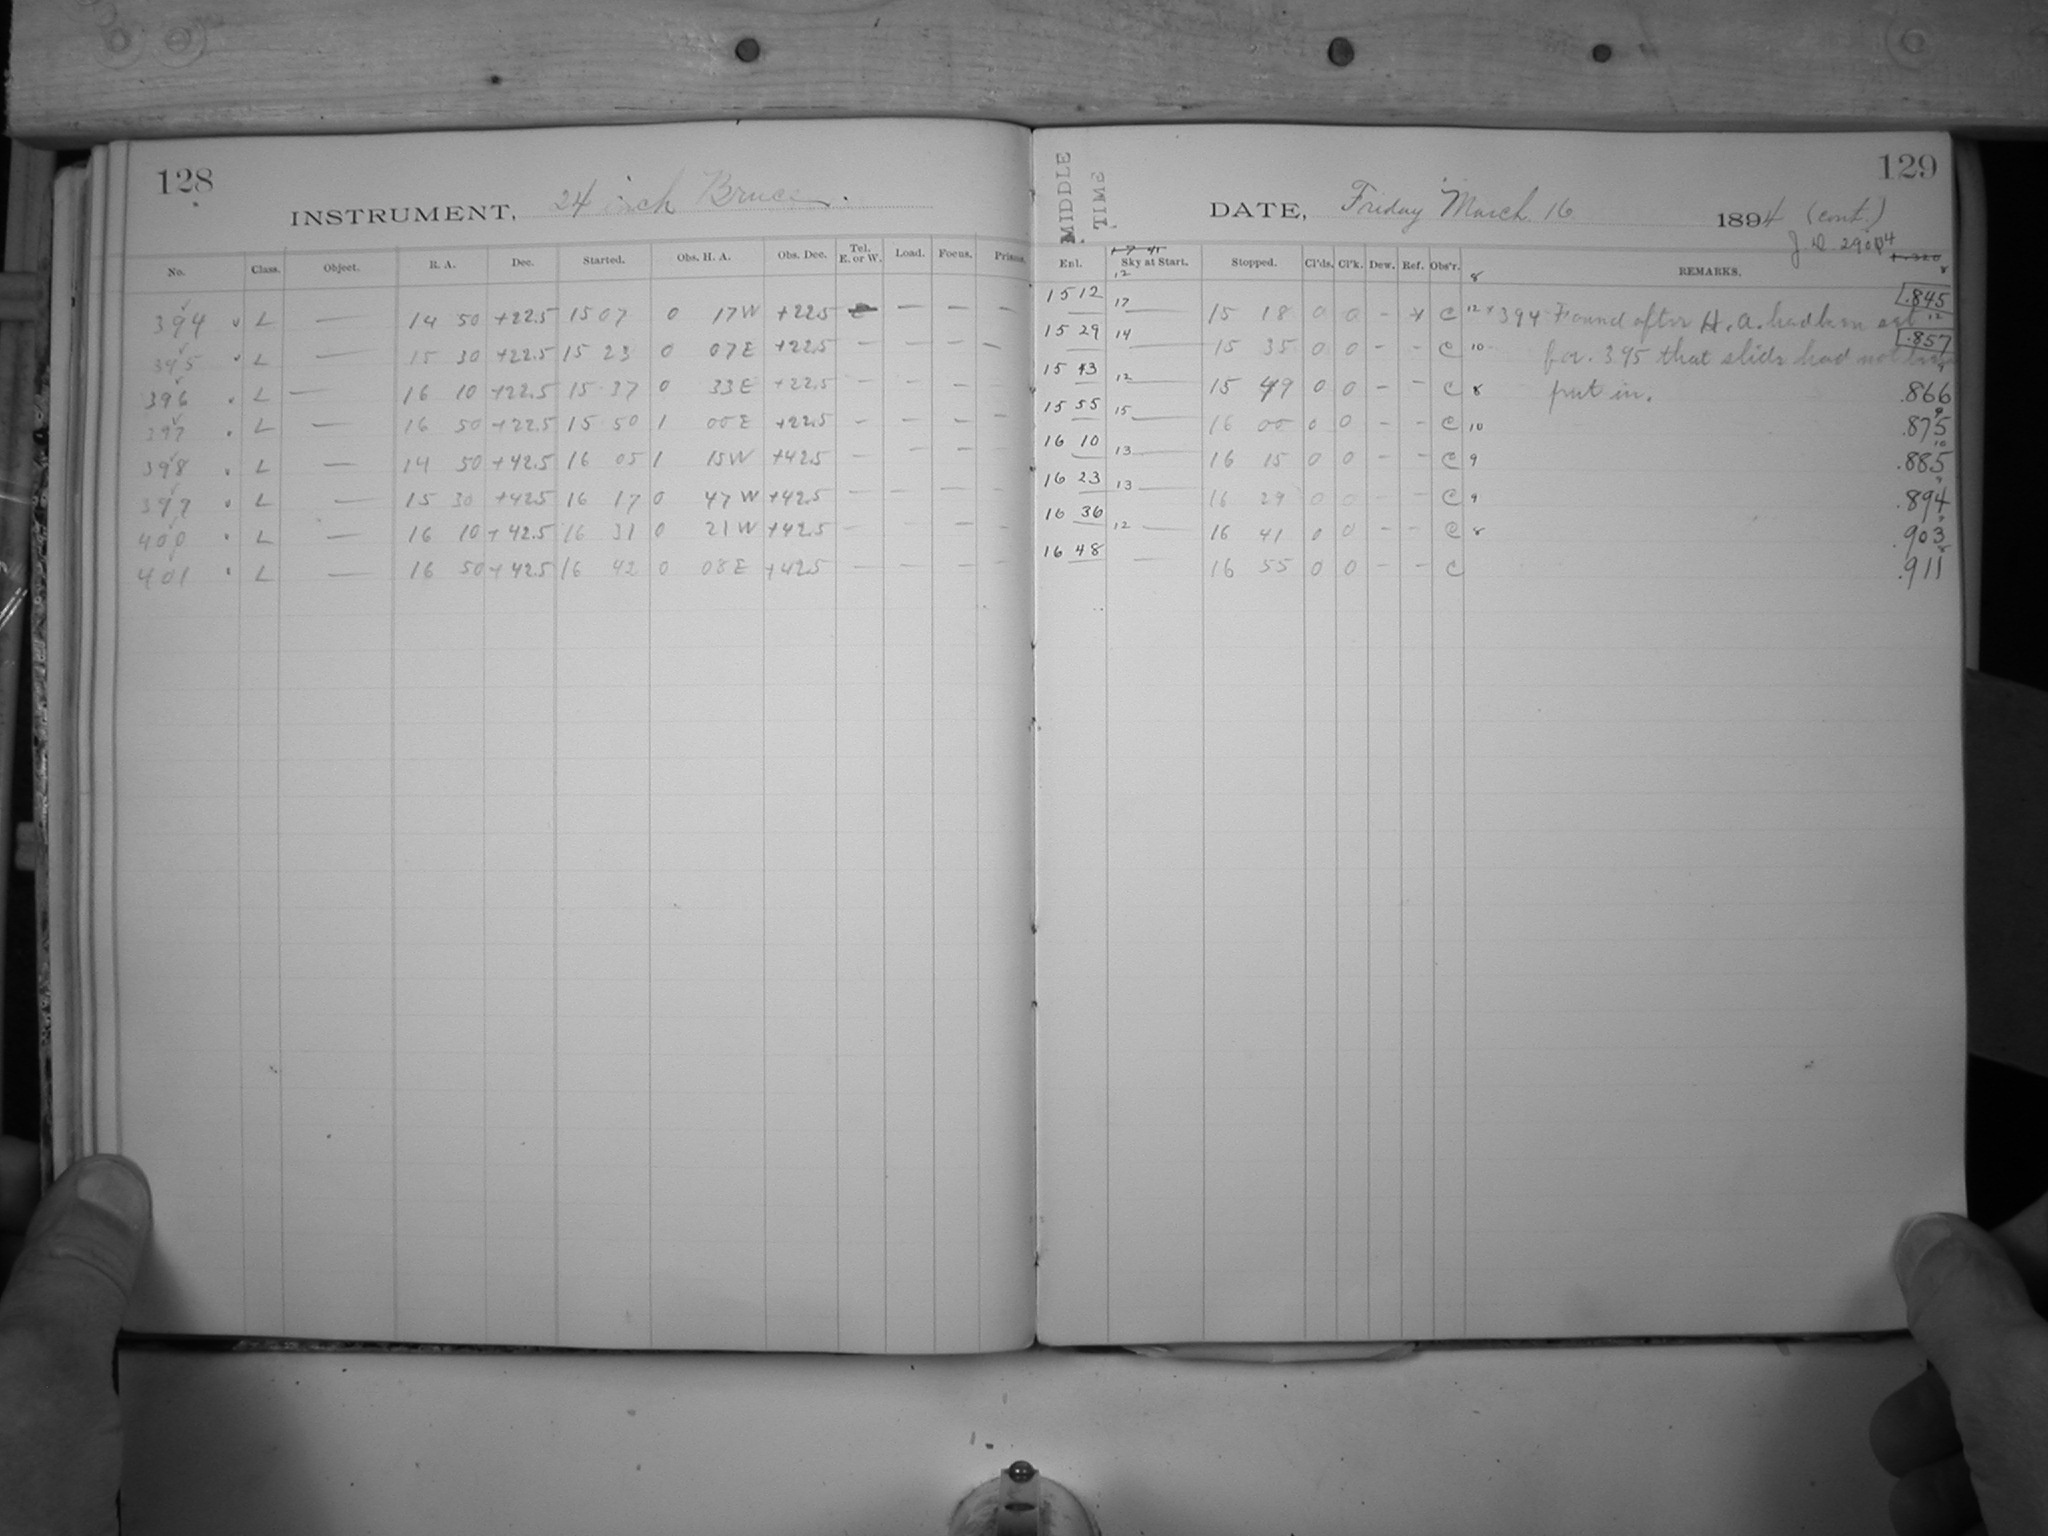 128
INSTRUMENT, 24 inch Bruce.
No. Class. Object. R. A. Dec. Started. Obs. H. A. Obs. Dec. Tel. E. or W. Load. Focus. Prisms.
394 L — 14 50 +22.5 15 07 0 17W +22.5 — — —
395 L — 15 30 +22.5 15 23 0 07E +22.5 — — — —
396 L — 16 10 +22.5 15 37 0 33E +22.5 — — — —
397 L — 16 50 +22.5 15 50 1 00E +22.5 — — — —
398 L — 14 50 +42.5 16 05 1 15W +42.5 — — — —
399 L — 15 30 +42.5 16 17 0 47W +42.5 — — — —
400 L — 16 10 +42.5 16 31 0 21W +42.5 — — — —
401 L — 16 50 +42.5 16 42 0 08E +42.5 — — — —
129
MIDDLE
TIME
DATE, Friday March 16 1894 (cont.)
Enl. Sky at Start. Stopped. Cl'ds. Cl'k. Dew. Ref. Obs'r. REMARKS.
12 8 8
15 12 17 — 15 18 0 0 - * C 12 * 394 Found after H. A. had been set .845 12
15 29 14 — 15 35 0 0 - - C 10 for 395 that slide had not been .857 9
15 43 12 — 15 49 0 0 - - C 8 put in. .866 9
15 55 15 — 16 00 0 0 - - C 10 .875 10
16 10 13 — 16 15 0 0 - - C 9 .885 9
16 23 13 — 16 29 0 0 - - C 9 .894 9
16 36 12 — 16 41 0 0 - - C 8 .903 8
16 48 — 16 55 0 0 - - C .911